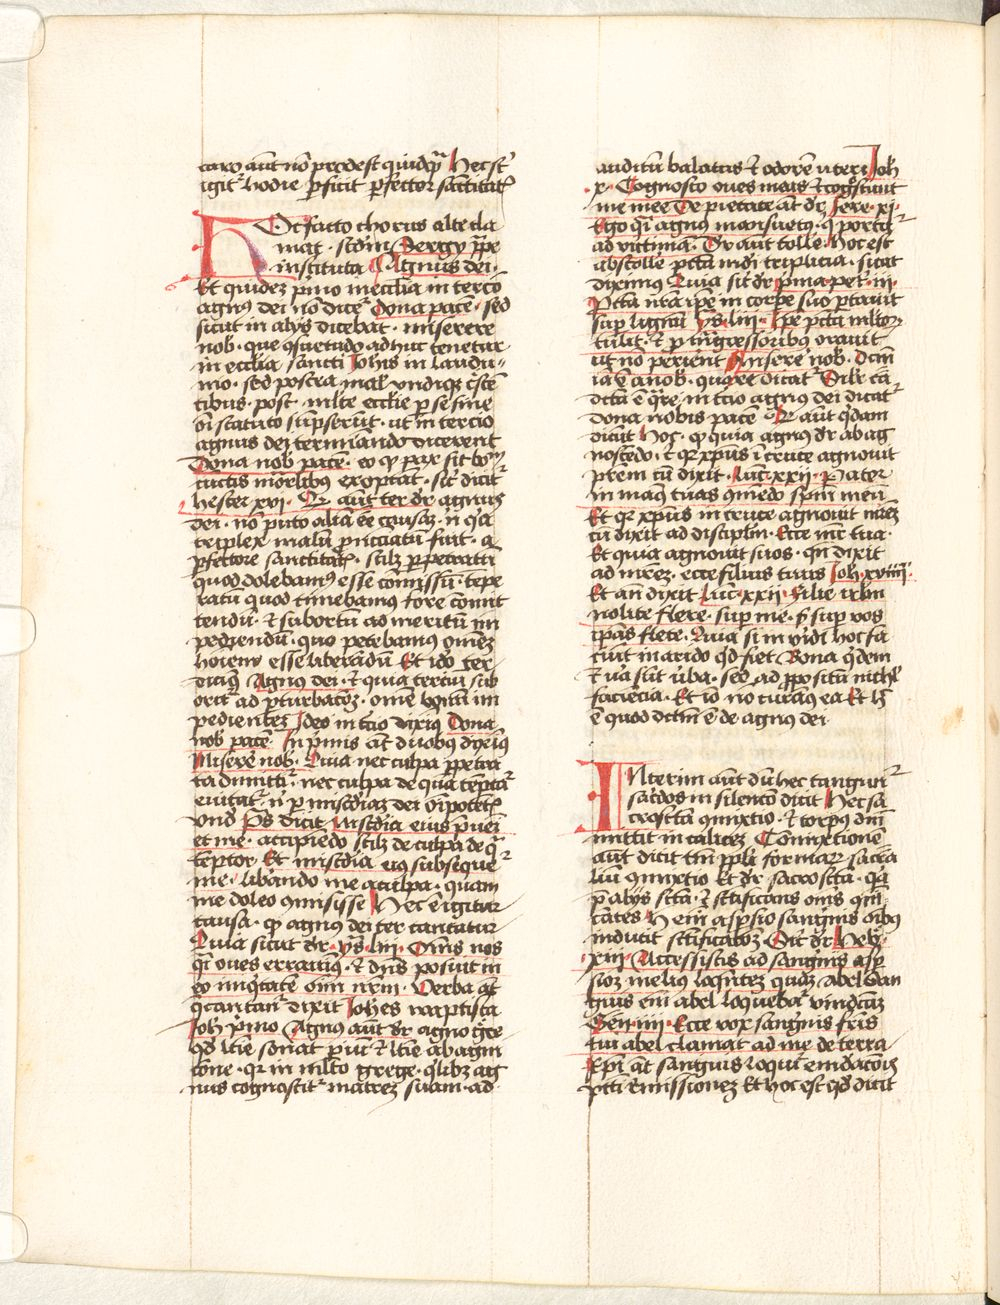 caro aut no prodest quidq̃ Hec st̃
igit̃ hodie p̃ficit p̃fector sanctitat̃
Hoc facto chorus alte cla
mat · scd̃m Sergy pp̃e
instituta Agnus dei ·
Et quidez p̃mo in ecclia in tercio
agnus dei nō dicet̃ dona pacē · sed
sicut in alys dicebat · miserere
nob · que ɔsuetudo adhuc tenetur
in ecclia sancti Johis in laudu
mo · sed postea mal̃ undiqz c̃scē
tibus · post · milite ecclie p̃ se sine
statuto sũpserũt · ut in tercio
agnus dei terminando dicerent
Dona nob pacē · eo qz pax sit
cũctis exoptan̄t · sic̃ dicit̃
hester xvi · aut ter dr̃ agnus
dei · nō puto aliā ēē causaz · n̄ q̃a
triplex malũ p̃nicciatũ fuit · a
p̃fectore sanctitat̃ · scilz p̃petratũ
quod dolebamꝰ esse cōmissũ · tepe
ratũ quod timebamus fore cōmit
tendũ · et subortũ ad meritũ im
pediendũ · quo petebamus omēz
hoiem esse liberandũ Et idō ter
dicimꝰ Agnus dei · et quia terciũ sub
orit̃ ad p̃turbacōz · omē bonũ im
pedientez Ideo in tcio diximꝰ Dona
nob pacē In p̃mis at duobus diximꝰ
Misere nob · Quia nec culpa p̃petra
ta dimittit̃ · nec culpa de qua tēptat̃
evitat̃ · n̄ p̃ misc̃diaz dei oĩpotetꝭ
Vnd p̃s dicit Misc̃dia eius p̃ueẽ
et me · accipiēdo scilz de culpa de q̃
tēptor · Et misc̃dia eiꝰ subseque
me · libando me a culpa · quam
me doleo ɔmisisse Hec ē igitur
causa · qz agnus dei ter cantatur
Quia sicut dr̃ · ys · liii · Om̃s nos
q̃i oues errauimꝰ · et dñs posuit in
eo iniq̃tate om̃i nr̃m · Verba at̃
q̃ cantant̃ dixit Johes baptista
Joh p̃mo Agnus aut dr̃ agno g̃ce
qd̃ ltīe sonat piũ et ltīe ab agni
tōne · qr in mlto grege · qlibz ag
nus cognoscit̃ matrez suam · ad
auditũ balatus et odorē uteri Joh
x · Cognosco oues meas et cogscunt
me mee De pietate at dr̃ Jere · xi ·
Ego q̃i agnus mansuetꝰ · q̃ portat̃
ad victimā · Dr̃ aut tolle · hoc est
abstolle pctā mdi triplicia · sicut
diximus Quia sic dr̃ p̃ma pet̃ · iii ·
Pctā nr̃a ip̃e in corpe suo p̃tauit
sup lignũ ys · liii · Ip̃e pctā mltoꝝ
tulit · et p̃ tñgressoribus orauit
ut nō perient Misere nob · Dcm̃
ia ē a nob · quare dicat̃ Sil̃r cā
dcta ē qr̃e in tcio agnus dei dicat̃
dona nobis pace vl̃ aut q̃dam
dicũt Hoc · qz quia agnus dr̃ ab ag
noscēdo · et qr xp̃us ĩ cruce agnouit
p̃rēm cũ dixit · Luc · xxii · Pater
in man̄ tuas ɔmēdo sp̃m meũ
Et qr xp̃us in cruce agnouit mrẽz
cũ dixit ad discipl̃m · Ecce mr̃ tua ·
Et quia agnouit suos · qn̄ dixit
ad mrẽz · ecce filius tuus Joh · xviiii ·
Et an̄ dixit Luc · xxii · Filie irl̃m
nolite flere · sup me · s̃ sup vos
ip̃as flete · Quia si in vidi hoc fa
ciũt in arido qd̃ fiet Bona q̃dem
et ũa sũt ũba · sed ad p̃positũ nichil
faciēcia · Et iō nō curamꝰ ea Et h̃
ē quod dcm̃ ē de agnus dei ·
Interim aut dũ hec tangunt̃
sac̃dos in silencō dicit Hec sa
crosctā ɔmixtio · et corpꝰ dn̄i
mittit in calicez Commixtionē
aut dicit tm̃ pp̃li formaz sacra
liũ ɔmixtio Et dr̃ sacrosctā · q̃a
p̃ abys sctā · et sctificans om̃s q̃li
tates H em̄ asp̃sio sanguinis oibꝰ
inducit sctificacōz Dicit̃ dr̃ Heb ·
xiii · Accessistis ad sanguinis asp̃
sioz melius loq̃ntez quaz Abel San
guis em abel loquebat̃ vindictaz
Gen · iiii · Ecce vox sanguinis fr̃is
tui abel clamat ad me de terra
Xp̃i at̃ sanguis loquit̃ emdacōis
pcti remissionez Et hoc est qd̃ dicit